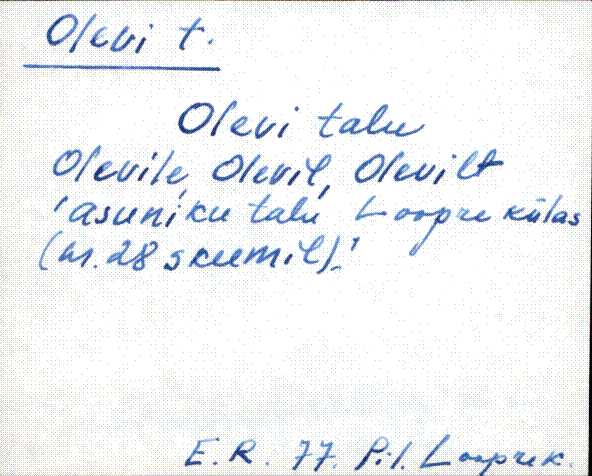 Olevi t.
Olevi talu
Olevile, Olevil, Olevilt
'asuniku talu Loopre külas
(nr. 28 skeemil).'
E.R. 77. Pil. Loopre k.